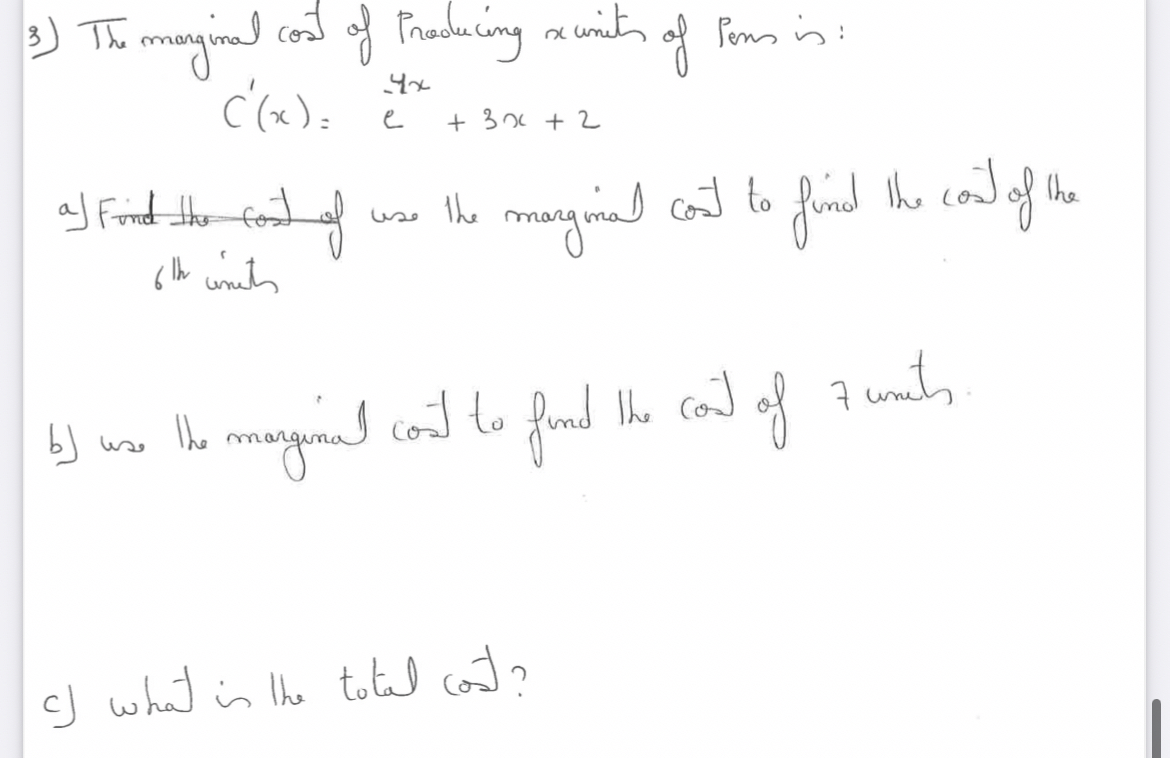 3) The marginal cost of Producing x units of Pens is:
C'(x) = e^{-4x} + 3x + 2
a) Find the cost of use the marginal cost to find the cost of the
6th units
b) use the marginal cost to find the cost of 7 units.
c) what is the total cost?